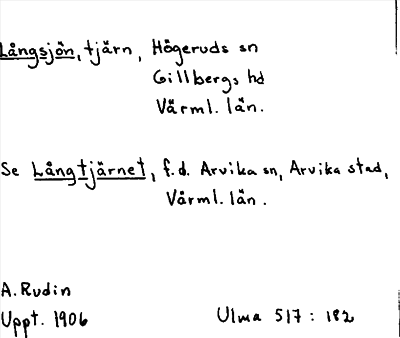 Långsjön, tjärn, Högeruds sn
Gillbergs hd
Värml. län.
Se Långtjärnet, f.d. Arvika sn, Arvika stad,
Värml. län.
A. Rudin
Uppt. 1906
Ulma 517 : 182